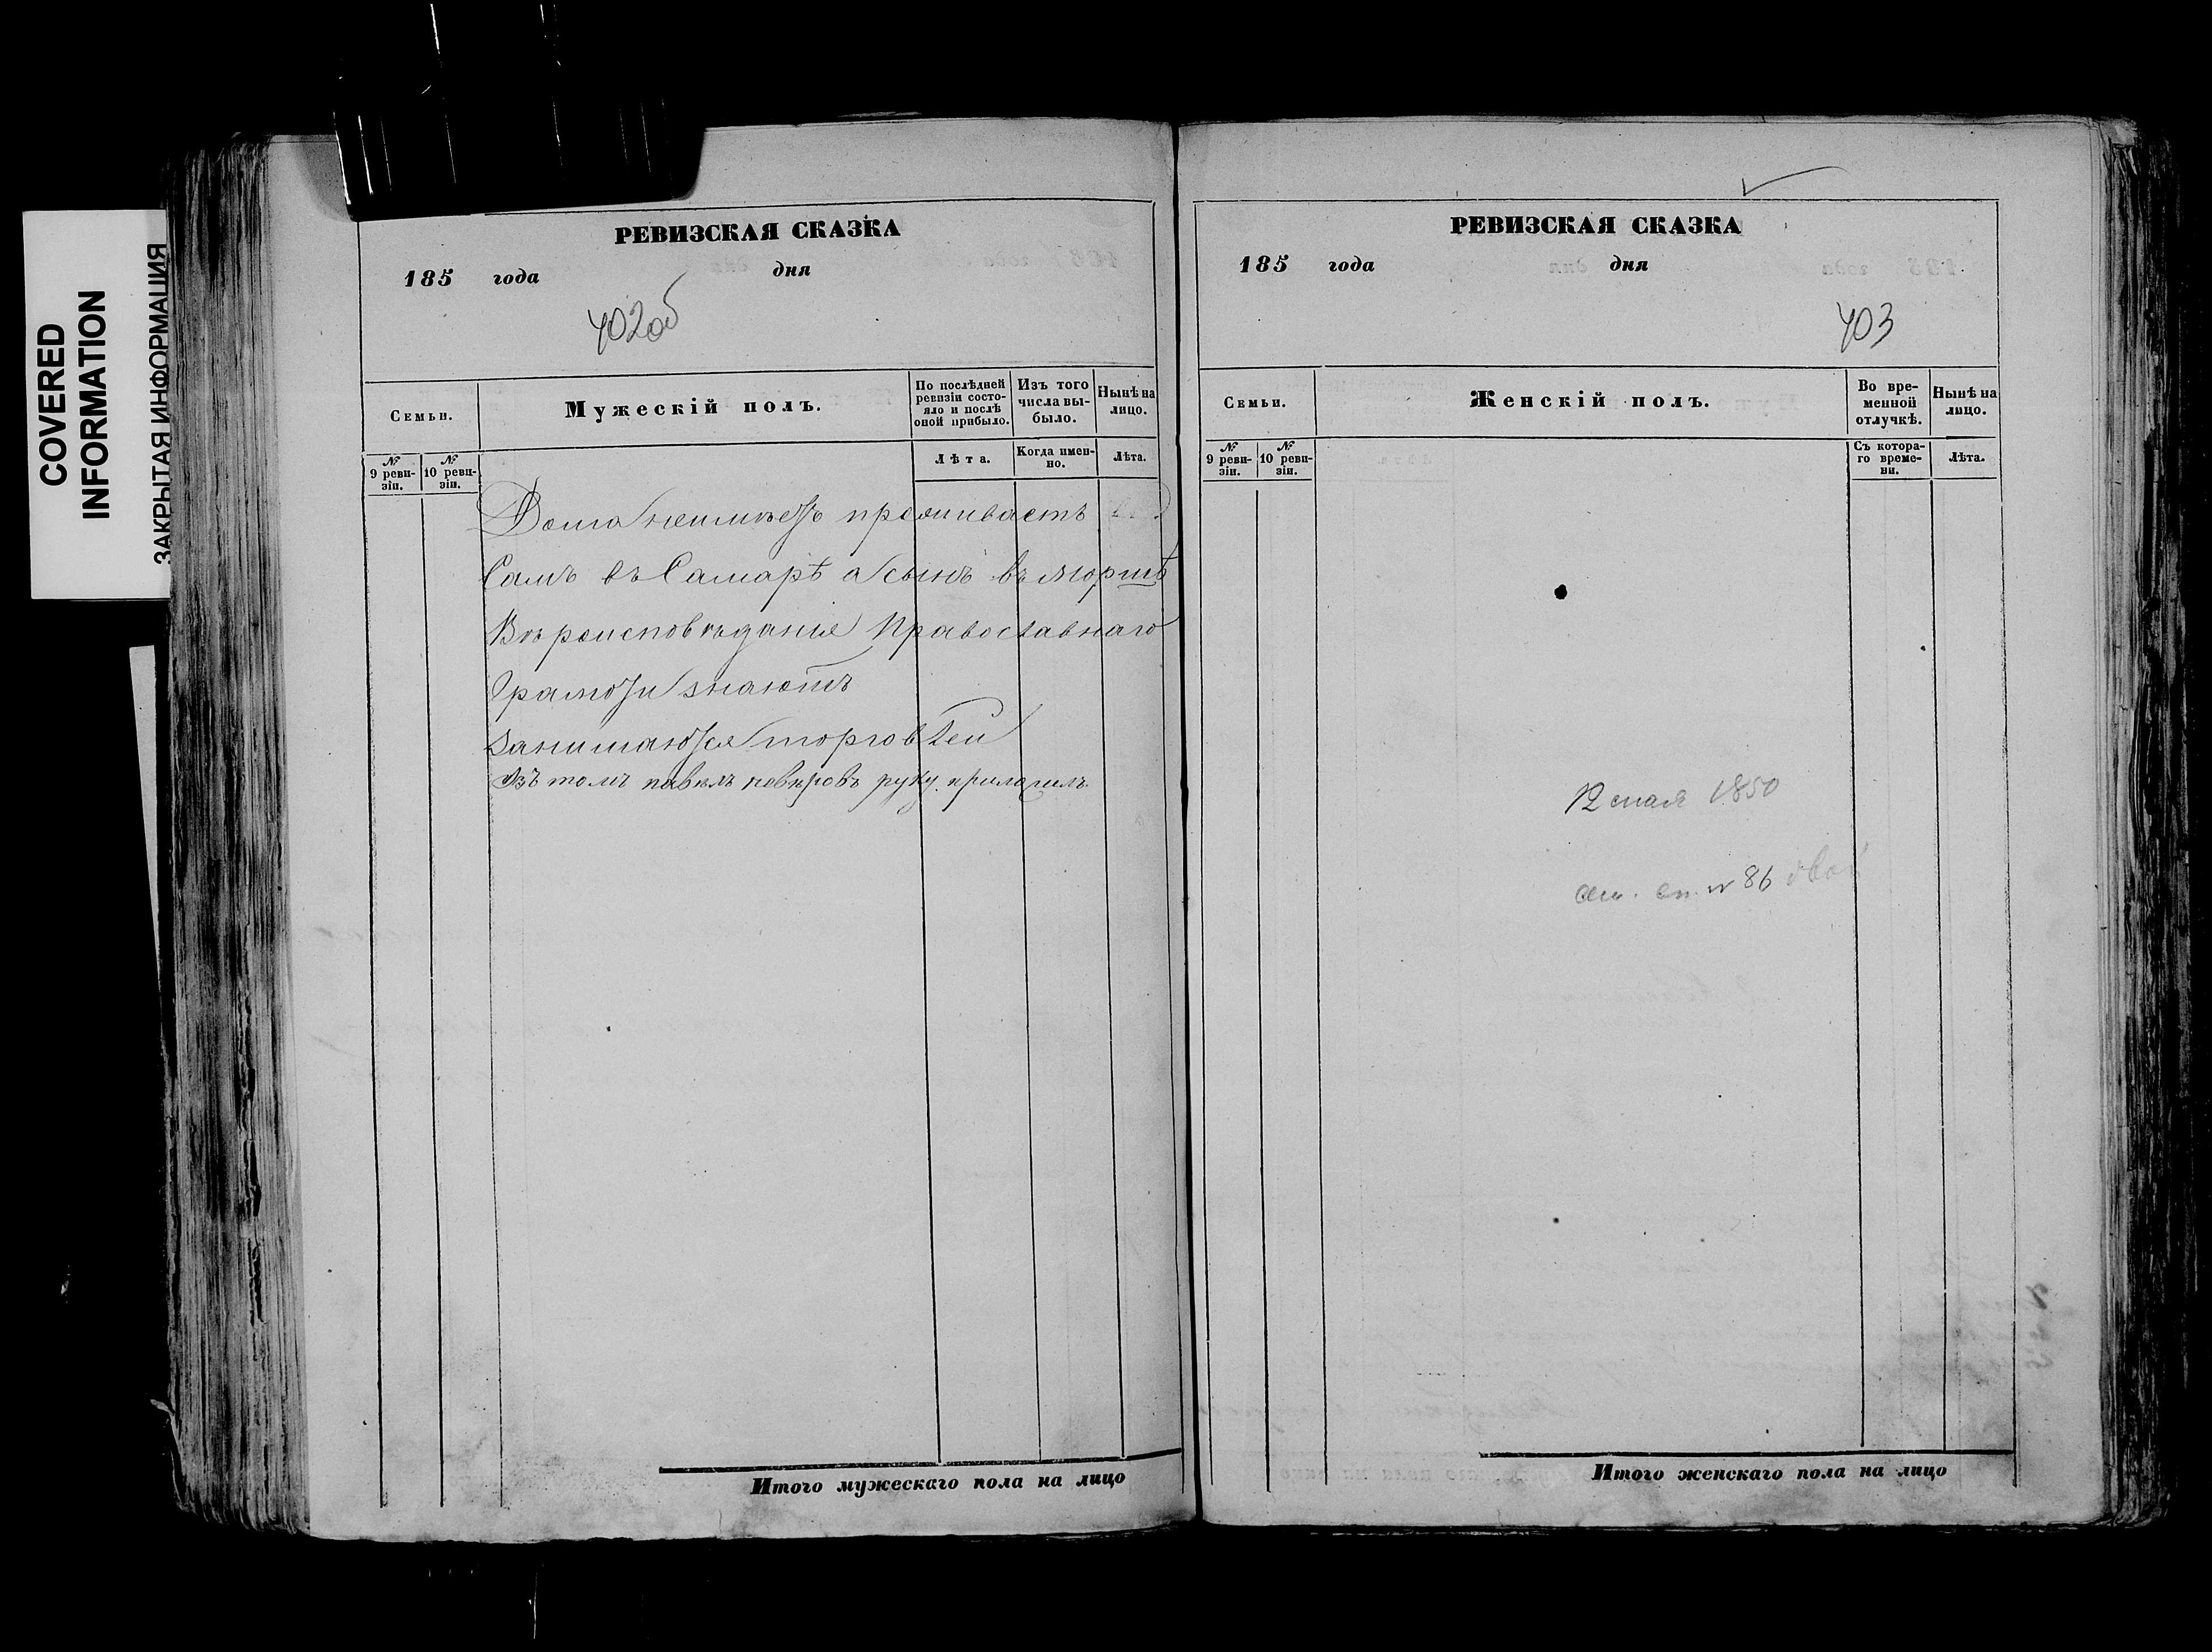 COVERED
INFORMATION
ЗАКРЫТАЯ ИНФОРМАЦИЯ
РЕВИЗСКАЯ СКАЗКА
185 года дня
402об
Семьи.
Мужескій полъ.
По послѣдней ревизіи состояло и послѣ оной прибыло.
Изъ того числа выбыло.
Нынѣ на лицо.
№ 9 ревизіи.
№ 10 ревизіи.
Лѣта.
Когда именно.
Лѣта.
Дома неимѣетъ проживаетъ
Самъ въ Самарѣ а сынъ въ
Вѣроисповѣдание Православнаго
Грамоти знаютъ
Занимаются торговлей
Въ томъ руку приложилъ
Итого мужескаго пола на лицо
РЕВИЗСКАЯ СКАЗКА
185 года дня
403
Семьи.
Женскій полъ.
Во временной отлучкѣ.
Нынѣ на лицо.
№ 9 ревизіи.
№ 10 ревизіи.
Съ котораго времени.
Лѣта.
12 мая 1850
№ 86
Итого женскаго пола на лицо